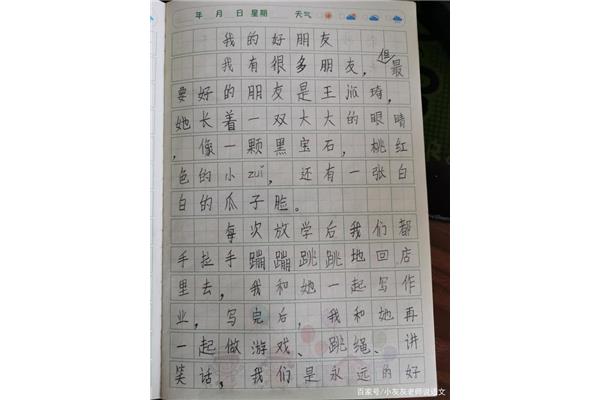 年 月 日 星期 天气
我的好朋友
我有很多朋友，但最
要好的朋友是王 琦，
她长着一双大大的眼睛
，像一颗黑宝石，桃红
色的小zuǐ，还有一张白
白的瓜子脸。
每次放学后我们都
手拉手蹦蹦跳跳地回店
里去，我和她一起写作
业，写完后，我和她再
一起做游戏、跳绳、讲
笑话，我们是永远的好
百家号/小灰灰老师说语文